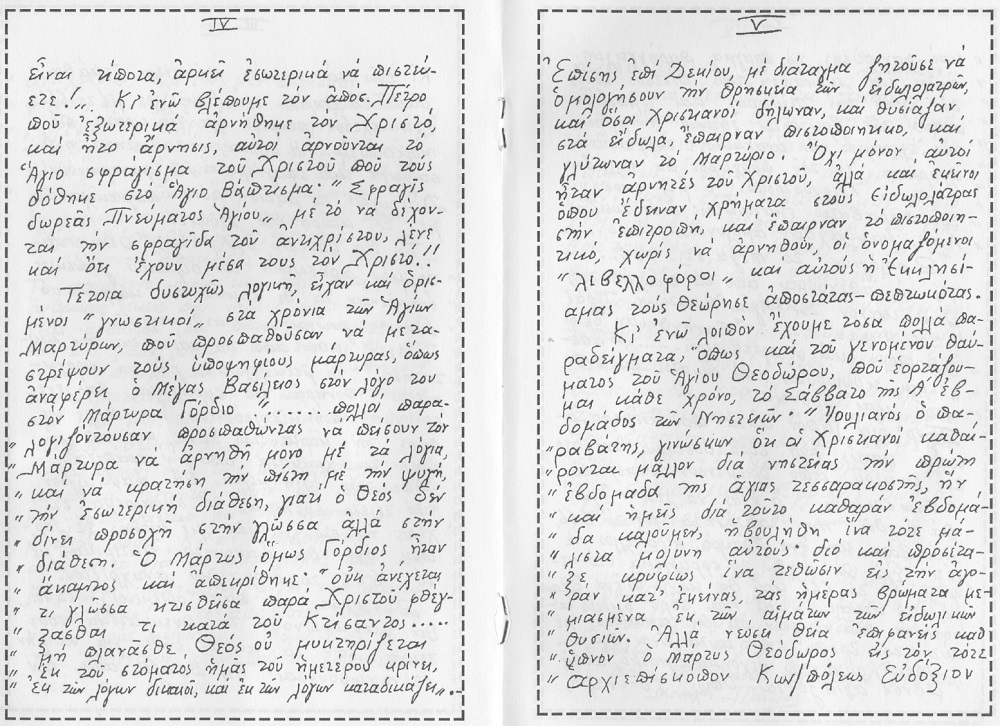 IV
εἶναι τίποτα, ἀρκεῖ ἐσωτερικά νά πιστεύ-
ετε!„ Κι' ἐνῶ βλέπουμε τόν ἀπόσ. Πέτρο
πού ἐξωτερικά ἀρνήθηκε τόν Χριστό,
καί ἦτο ἄρνησις, αὐτοί ἀρνοῦνται τό
Ἅγιο σφράγισμα τοῦ Χριστοῦ πού τούς
δόθηκε στό Ἅγιο Βάπτισμα· "Σφραγίς
δωρεᾶς Πνεύματος Ἁγίου„, μέ τό νά δέχον-
ται τήν σφραγῖδα τοῦ ἀντιχρίστου, λένε
καί ὅτι ἔχουν μέσα τους τόν Χριστό!!
Τέτοια δυστυχῶς λογική, εἶχαν καί ὁρισ-
μένοι "γνωστικοί„ στα χρόνια τῶν Ἁγίων
Μαρτύρων, πού προσπαθοῦσαν νά μετα-
στρέψουν τούς ὑποψηφίους μάρτυρας, ὅπως
ἀναφέρει ὁ Μέγας Βασίλειος στόν λόγο του
στόν Μάρτυρα Γόρδιο "......πολλοί παρα-
„ λογιζοντουσαν προσπαθῶντας νά πείσουν τόν
„ Μάρτυρα νά ἀρνηθῆ μόνο μέ τά λόγια,
„ καί νά κρατήση τήν πίστη μέ τήν ψυχή,
„ τήν ἐσωτερική διάθεση, γιατί ὁ Θεός δέν
„ δίνει προσοχή στήν γλῶσσα ἀλλά στήν
„ διάθεση. Ὁ Μάρτυς ὅμως Γόρδιος ἦταν
„ ἄκαμπτος καί ἀπεκρίθηκε· "οὐκ ἀνέχεται
„ τι γλῶσσα κτισθεῖσα παρά Χριστοῦ φθέγ-
„ ξασθαι τι κατά τοῦ Κτίσαντος.....
„ μή πλανᾶσθε, Θεός οὐ μυκτηρίζεται
„ ἐκ τοῦ στόματος ἡμᾶς τοῦ ἡμετέρου κρίνει,
„ ἐκ τῶν λόγων δικαιοῖ, καί ἐκ τῶν λόγων καταδικάζει„.
V
Ἐπίσης ἐπί Δεκίου, μέ διάταγμα ζητοῦσε νά
ὁμολογήσουν τήν θρησκεία τῶν εἰδωλολατρῶν,
καί ὅσοι Χριστιανοί δήλωναν, καί θυσίαζαν
στά εἴδωλα, ἔπαιρναν πιστοποιητικό, καί
γλύτωναν τό Μαρτύριο. Ὄχι μόνον αὐτοί
ἦταν ἀρνητές τοῦ Χριστοῦ, ἀλλά καί ἐκεῖνοι
ὅπου ἔδειναν χρήματα στούς Εἰδωλολάτρας
στήν ἐπιτροπή, καί ἔπαιρναν τό πιστοποιη-
τικό, χωρίς νά ἀρνηθοῦν, οἱ ὀνομαζόμενοι
"λιβελλοφόροι„ καί αὐτούς ἡ Ἐκκλησί-
α μας τούς θεώρησε ἀποστάτας-πεπτωκότας.
Κι' ἐνῶ λοιπόν ἔχουμε τόσα πολλά πα-
ραδείγματα, ὅπως καί τοῦ γενομένου θαύ-
ματος τοῦ Ἁγίου Θεοδώρου, πού ἑορτάζου-
με κάθε χρόνο, τό Σάββατο τῆς Α' ἑβ-
δομάδος τῶν Νηστειῶν· "Ἰουλιανός ὁ πα-
„ ραβάτης, γινώσκων ὅτι οἱ Χριστιανοί καθαί-
„ ρονται μᾶλλον διά νηστείας τήν πρώτη
„ ἑβδομάδα τῆς ἁγίας τεσσαρακοστῆς, ἥν
„ καί ἡμεῖς διά τοῦτο καθαράν ἑβδομά-
„ δα καλοῦμεν, ἠβουλήθη ἵνα τότε μά-
„ λιστα μολύνη αὐτούς· διό καί προσέτα-
„ ξε κρυφίως ἵνα τεθῶσιν εἰς τήν ἀγο-
„ ράν κατ' ἐκείνας τάς ἡμέρας βρώματα με-
„ μιασμένα ἐκ τῶν αἱμάτων τῶν εἰδωλικῶν
„ θυσιῶν. Ἀλλά νεύσει θεία ἐπιφανείς καθ'
„ ὕπνον ὁ Μάρτυς Θεόδωρος εἰς τόν τότε
„ ἀρχιεπίσκοπον Κων/πόλεως Εὐδόξιον